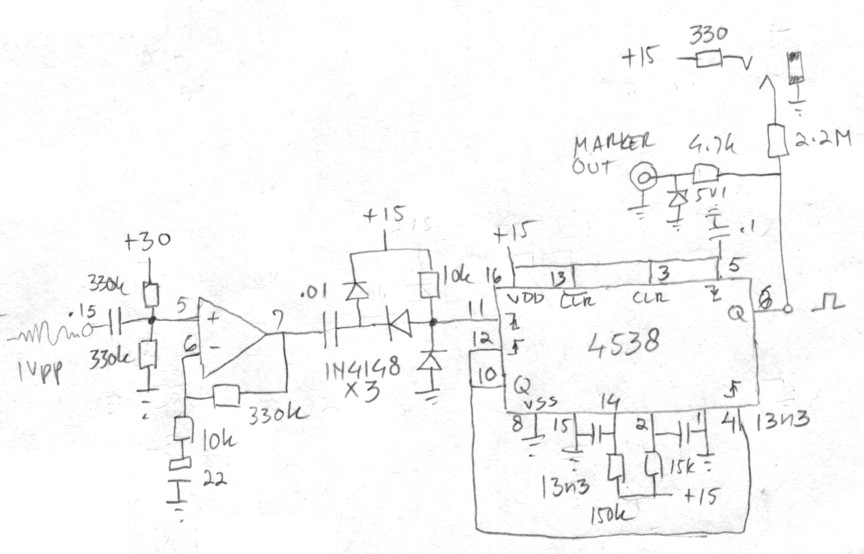 330
+15
2.2M
MARKER
OUT
4.7k
5V1
.1
+15
+30
+15
330k
10k
16
13
3
5
.15
.01
11
VDD
CLR
CLR
5
7
6
+
Q
1Vpp
330k
6
-
12
4538
1N4148
X3
10
Q
330k
VSS
14
10k
8
15
2
1
4
13n3
22
13n3
15k
150k
+15